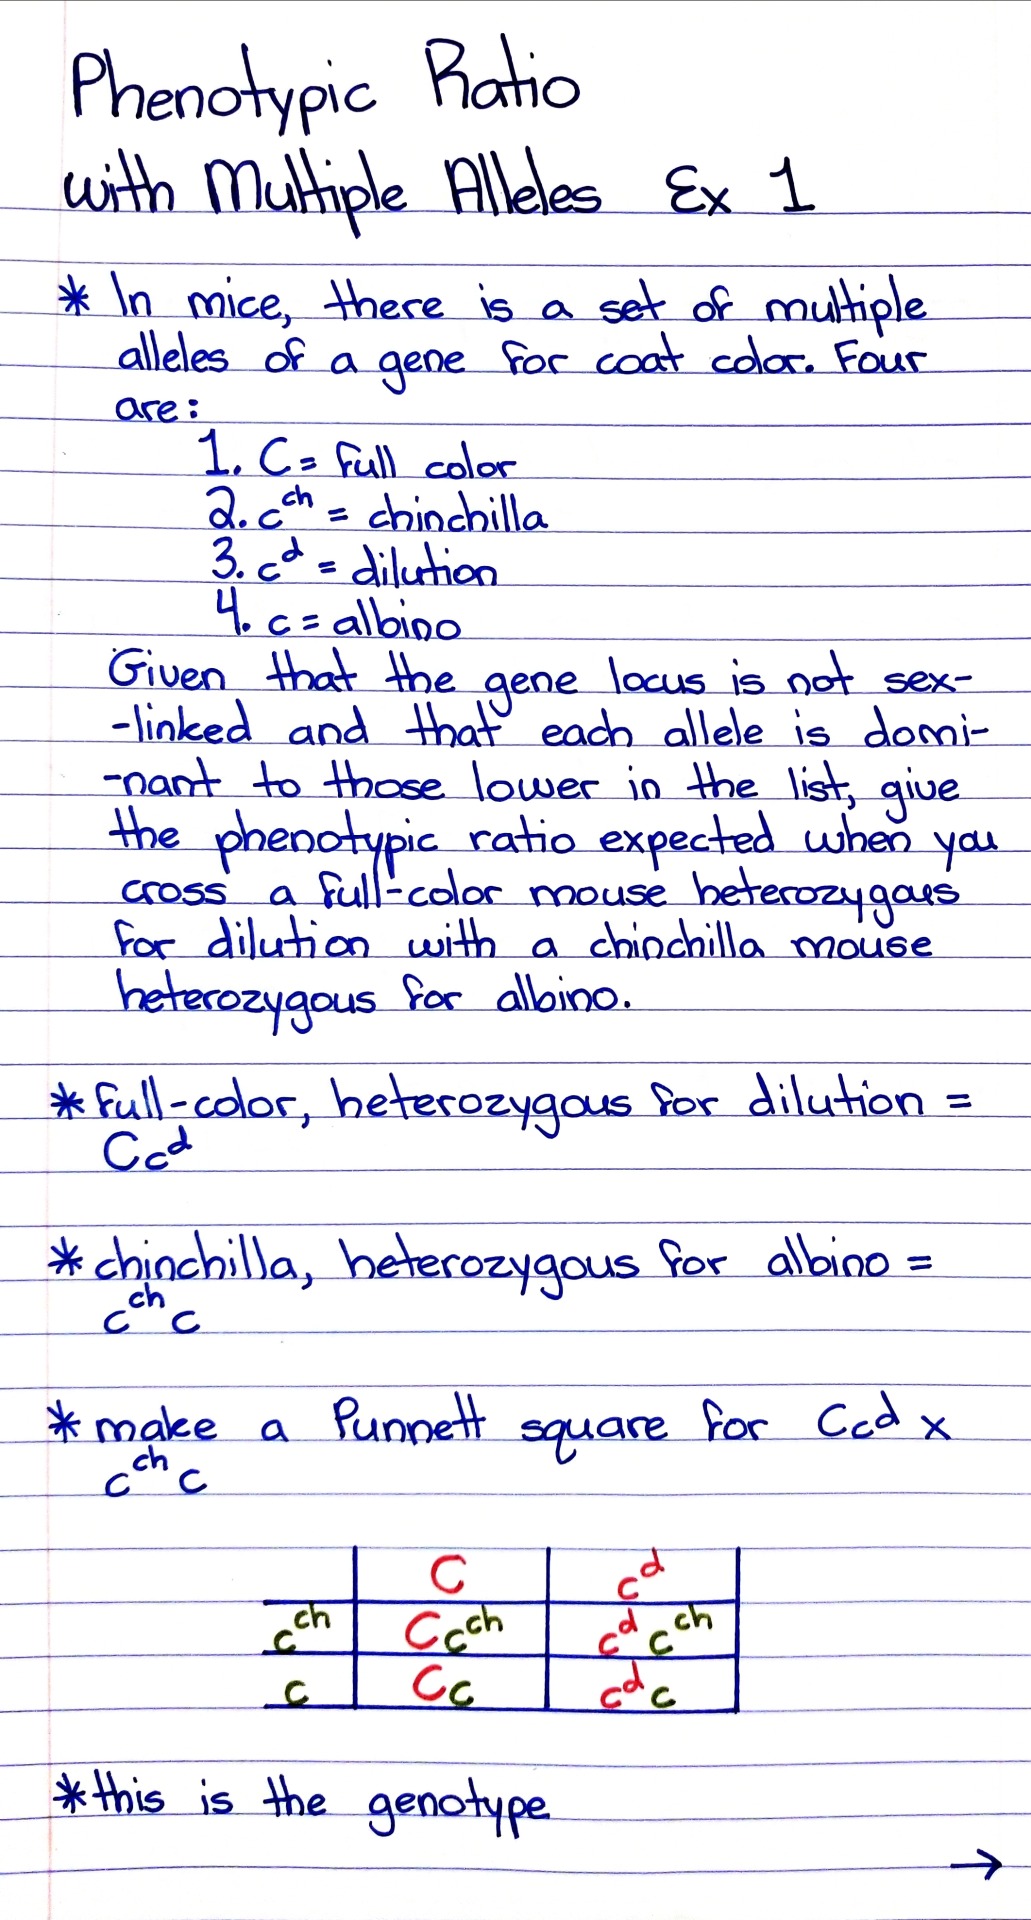 Phenotypic Ratio
with Multiple Alleles Ex 1
* In mice, there is a set of multiple
alleles of a gene for coat color. Four
are:
1. C = full color
2. c^ch = chinchilla
3. c^d = dilution
4. c = albino
Given that the gene locus is not sex-
-linked and that each allele is domi-
-nant to those lower in the list, give
the phenotypic ratio expected when you
cross a full-color mouse heterozygous
for dilution with a chinchilla mouse
heterozygous for albino.
* full-color, heterozygous for dilution =
Cc^d
* chinchilla, heterozygous for albino =
c^ch c
* make a Punnett square for Cc^d x
c^ch c
C c^d
c^ch Cc^ch c^d c^ch
c Cc c^d c
* this is the genotype
→